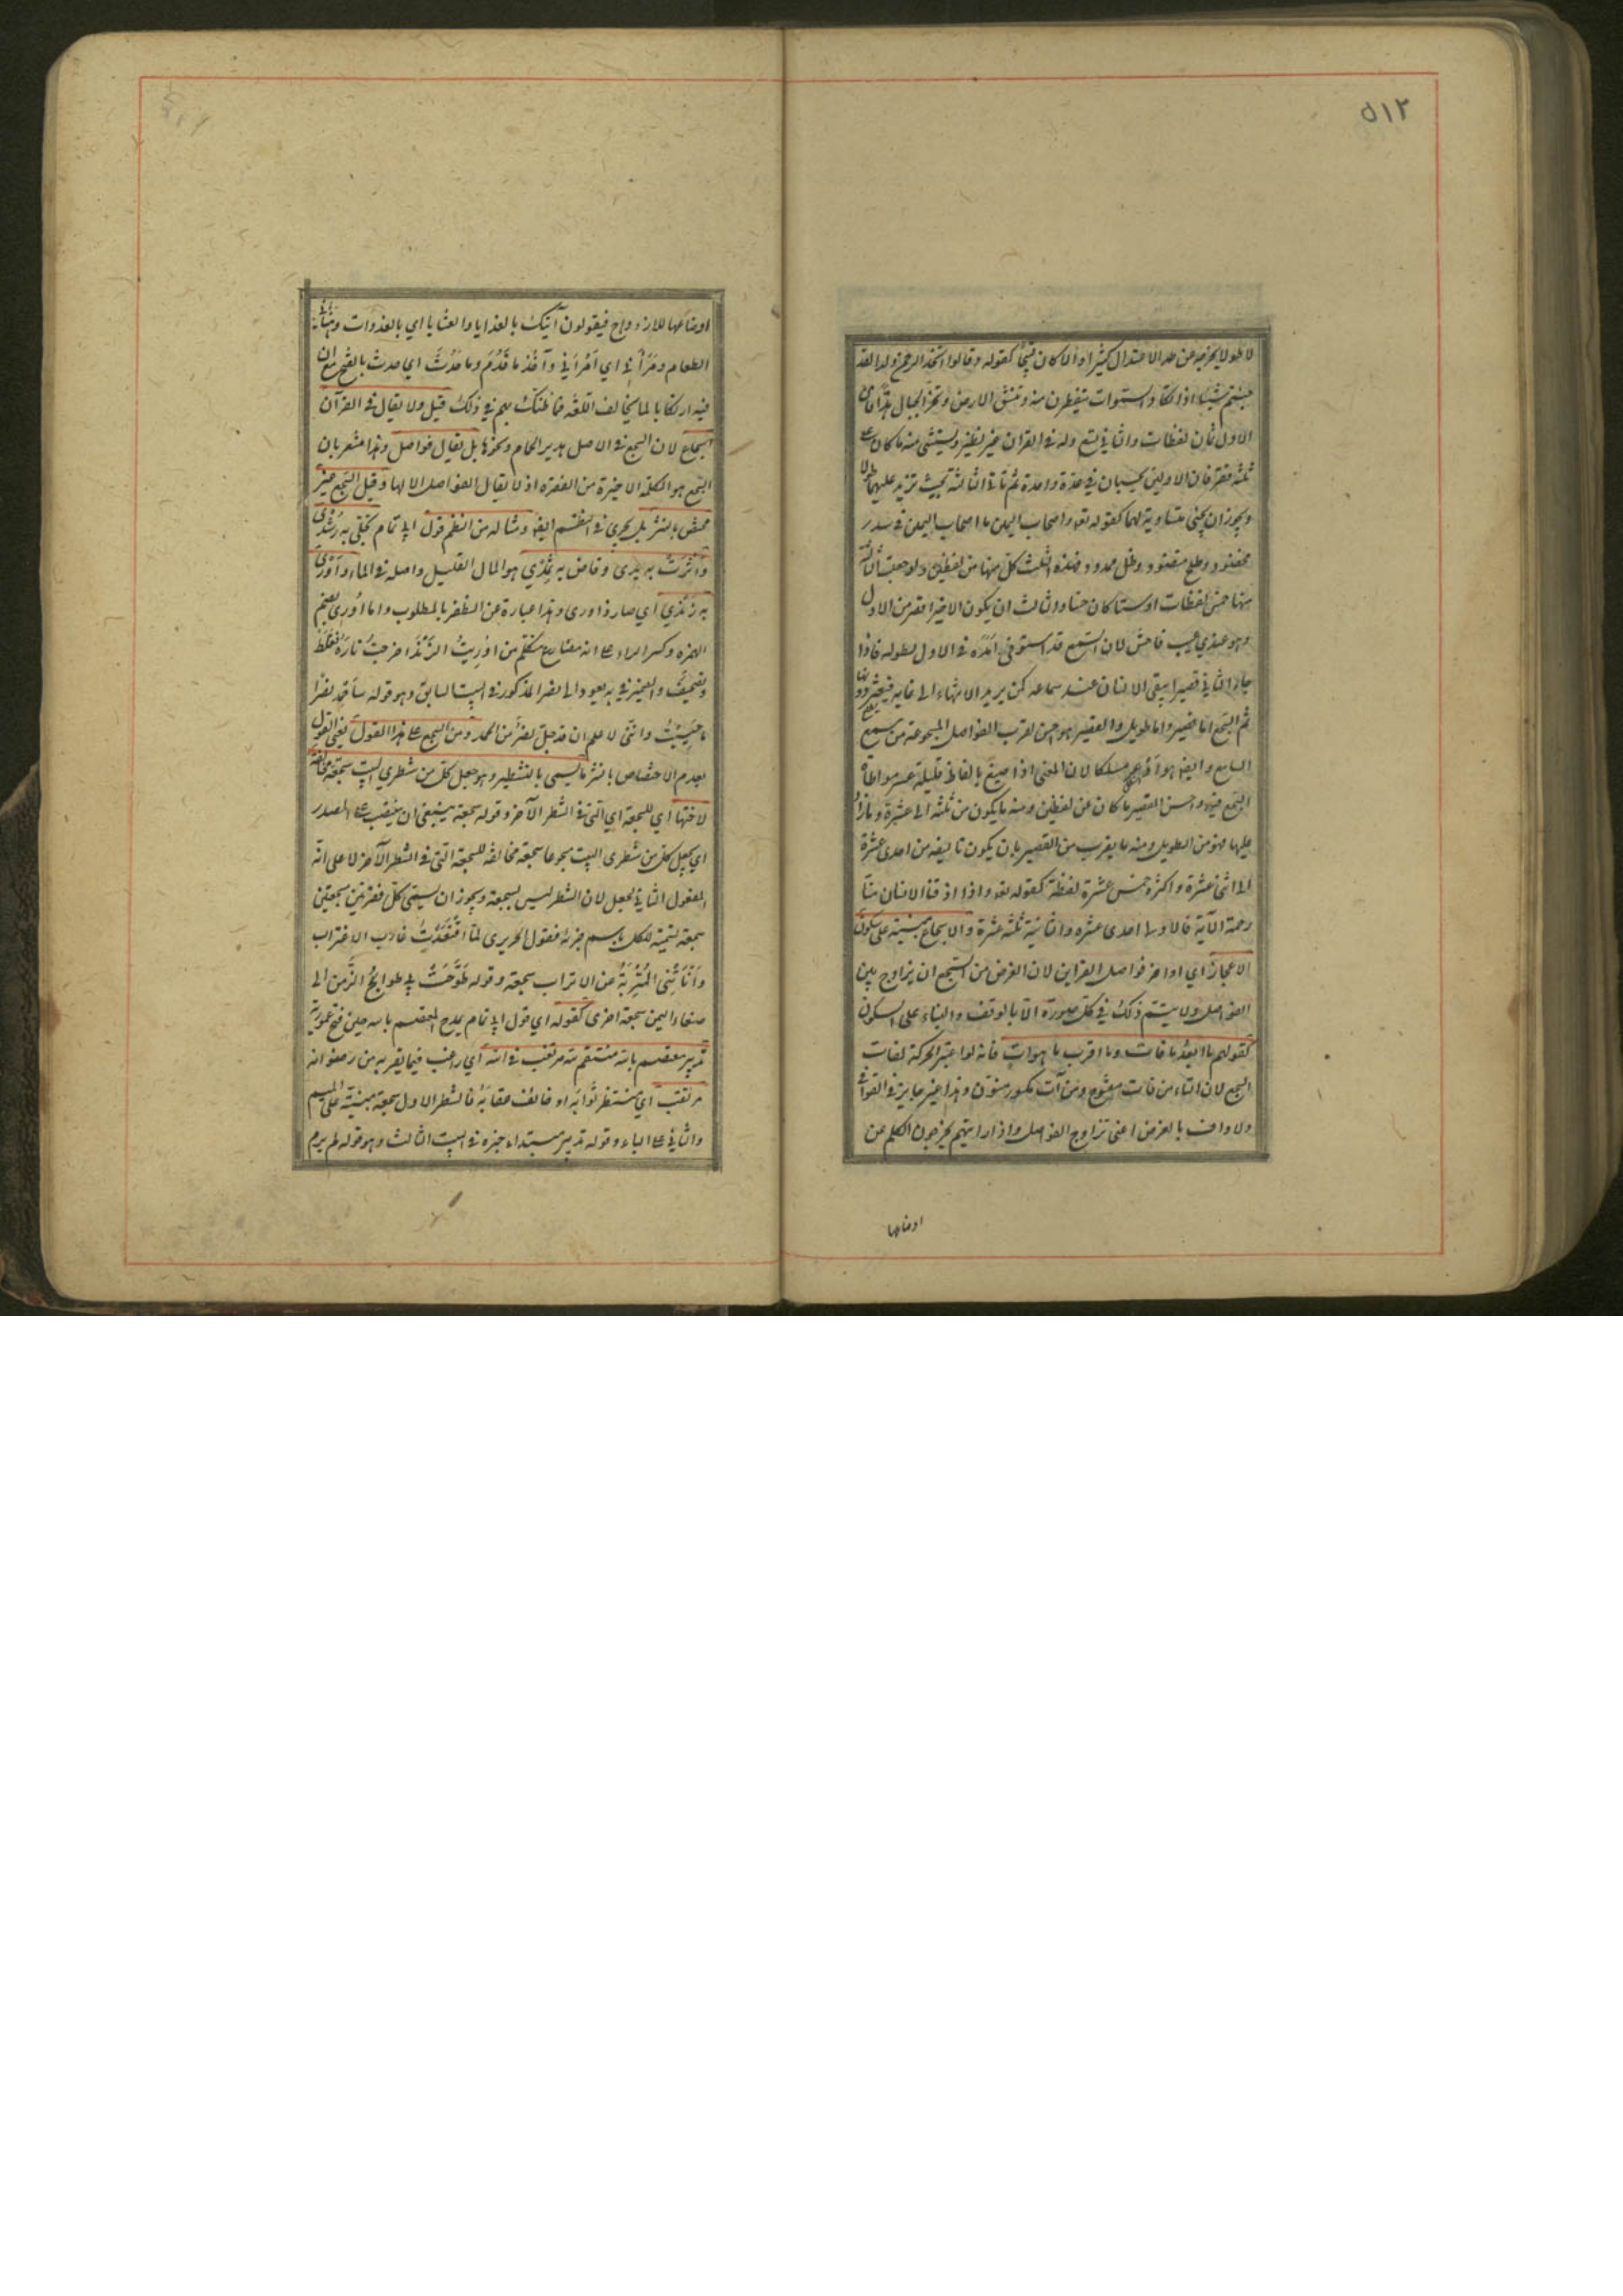 ٥١٢
لا طولا يخرج عن حد الاعتدال كثيرا والا كان قبيحا كقوله وقالوا اتخذ الرحمن ولدا لقد
جئتم شيئا ادا تكاد السموات يتفطرن منه وتنشق الارض وتخر الجبال هدا فان
الاول ثمان لفظات والثاني تسع وله في القران غير نظير ويستثنى منه ما كان على
ثلثة فقر فان الاوليين يحسبان في عدة واحدة ثم تاتي الثالثة بحيث تزيد عليهما طولا
ويجوز ان يجئ متساوية لهما كقوله تعالى واصحاب اليمين ما اصحاب اليمين في سدر
مخضود وطلح منضود وظل ممدود فهذه الثلث كل منها من لفظين ولو جعلت الثالثة
منها خمس لفظات او ستا كان حسنا والثالث ان يكون الاخير اقصر من الاول
وهو عندي عيب فاحش لان السمع قد استوفى امده في الاول بطوله فاذا
جاء الثاني قصيرا يبقى الانسان عند سماعه كمن يريد الانتهاء الى غاية فيعثر دونها
ثم السجع اما قصير واما طويل والقصير هو احسن لقرب الفواصل المسجوعة من سمع
السامع وايضا هو اوعر مسلكا لان المعنى اذا صيغ بالفاظ قليلة عسر مواطاة
السجع فيه واحسن القصير ما كان من لفظين ومنه ما يكون من ثلثة الى عشرة وما زاد
عليها فهو من الطويل ومنه ما يقرب من القصير بان يكون تاليفه من احدى عشرة
الى اثنى عشرة واكثره خمس عشرة لفظة كقوله تعالى واذا اذقنا الانسان منا
رحمة الآية فالاولى احدى عشره والثانية ثلثة عشرة والاسجاع مبنية على سكون
الاعجاز اي اواخر فواصل القراين لان الغرض من السجع ان يزاوج بين
الفواصل ولا يتم ذلك في كل صورة الا بالوقف والبناء على السكون
كقولهم ما ابعد ما فات وما اقرب ما هو آت فانه لو اعتبر الحركة لفات
السجع لان التاء من فات مفتوح ومن آت مكسور منون وهذا غير جايز في القوافي
ولا واف بالغرض اعني تزاوج الفواصل واذا رايتهم يخرجون الكلم عن
اوضاعها
اوضاعها للازدواج فيقولون آتيك بالغدايا والعشايا اي بالغدوات وهنأني
الطعام ومرأني اي امرأني واخذ ما قدم وما حدث اي حدث بالفتح مع ان
فيه ارتكابا لما يخالف اللغة فما ظنك بهم في ذلك قيل ولا يقال في القرآن
اسجاع لان السجع في الاصل هدير الحمام ونحوها بل يقال فواصل وهذا مشعر بان
السجع هو الكلمة الاخيرة من الفقرة اذ لا يقال الفواصل الا لها وقيل السجع غير
مختص بالنثر بل يجري في النظم ايضا ومثاله من النظم قول ابي تمام تجلى به رشدي
واثرت به يدي وفاض به ثمدي هو المال القليل واصله في الماء واورى
به زندي اي صار ذا ورى وهذا عبارة عن الظفر بالمطلوب واما اوري بضم
الهمزة وكسر الراء على انه مضارع متكلم من اوريت الزند اخرجت ناره فغلط
وتصحيف والضمير في به يعود الى نصر المذكور في البيت السابق وهو قوله ساحمد نصرا
ما حييت وانني لاعلم ان قد جل نصر من الحمد ومن السجع على هذا القول يعني القول
بعدم الاختصاص بالنثر ما يسمى بالتشطير وهو جعل كل من شطري البيت سجعة مخالفة
لاختها اي للسجعة اي التي في الشطر الآخر وقوله سجعة ينبغي ان ينتصب على المصدر
اي يجعل كل من شطري البيت مسجوعا سجعة مخالفة للسجعة التي في الشطر الآخر لا على انه
المفعول الثاني لجعل لان الشطر ليس بسجعة ويجوز ان يسمى كل فقرتين سجعتين
سجعة تسمية للكل باسم جزئه فقول الحريري لما اقتعدت غارب الاغتراب
وأنأتني المتربة عن الاتراب سجعة وقوله طوحت بي طوايح الزمن الى
صنعاء اليمن سجعة اخرى كقوله اي قول ابي تمام يمدح المعتصم بالله حين فتح عمورية
تدبير معتصم بالله منتقم لله مرتغب في الله اي راغب فيما يقربه من رضوانه
مرتقب اي منتظر ثوابه او خائف عقابه فالشطر الاول سجعة مبنية على الميم
والثاني على الباء وقوله تدبير مبتداء خبره في البيت الثالث وهو قوله لم يرم